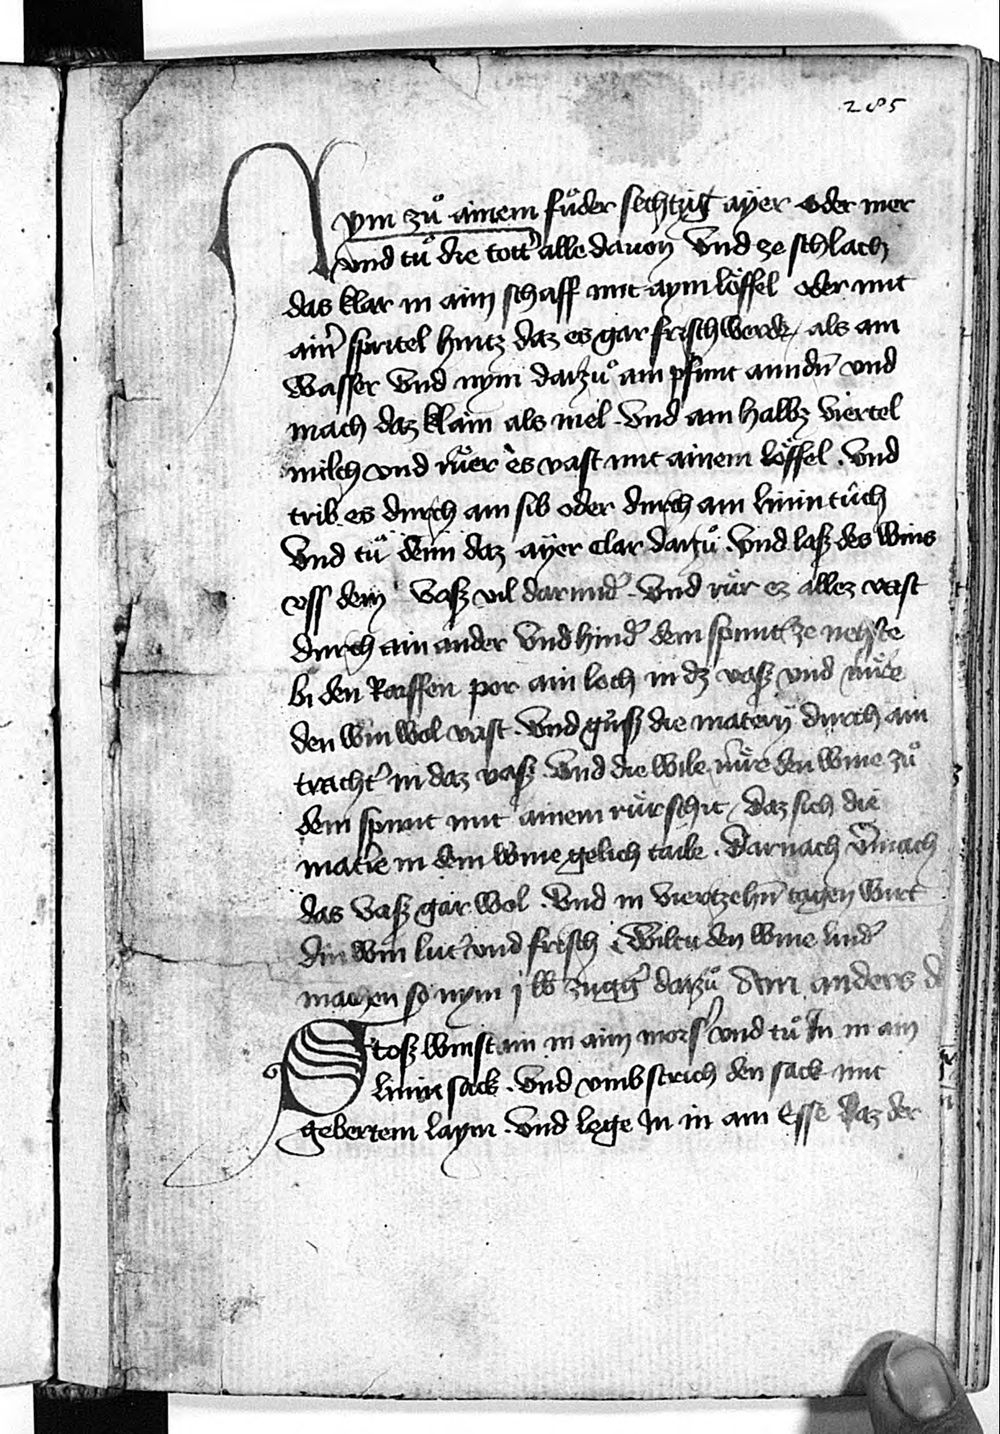 285
Nym zuͦ ainem fuͤder sechtzig aÿer oder mer
vnd tuͦ die tott&#x27; alle dauon Vnd ze schlach
das klar in aim schaff mit aym loͤffel oder mit
ain&#x27; spritel hintz daz es gar frisch werde als ain
wasser Vnd nym darzuͦ ain pfunt amndu̅ vnd
mach daz klain als mel . Vnd ain halbz viertel
milch vnd ruͤer es vast mit ainem loͤffel . Vnd
trib es durch ain sib oder durch ain linin tuͦch
Vnd tuͦ denn daz aÿer clar dartzuͦ . Vnd laß des wins
vss dem vaß vil darund&#x27; . Vnd ruͤr ez allez vast
durch ain ander Vnd hind&#x27; dem spunt ze nechste
bi den Raiffen por ain loch in dz vaß vnd ruͤre
den win wol vast . Vnd guͤß die materÿ durch ain
tracht&#x27; in daz vaß . Vnd die wile ruͤre den wine zuͦ
dem spunt mit ainem ruͤrschit / daz sich die
mat&#x27;ie in dem wine gelich taile . Darnach v&#x27;mach
das vaß gar wol . Vnd in viertzehn tagen wirt
din win lut&#x27; vnd frisch Wiltu den wine lind&#x27;
machen so nym j lb zugg&#x27; darzuͦ Ain anders
Stoß winstain in aim mors&#x27; vnd tuͦ In in ain
linin sack . Vnd vmbstrich den sack mit
gebertem laym . Vnd lege In in ain Esse Daz der